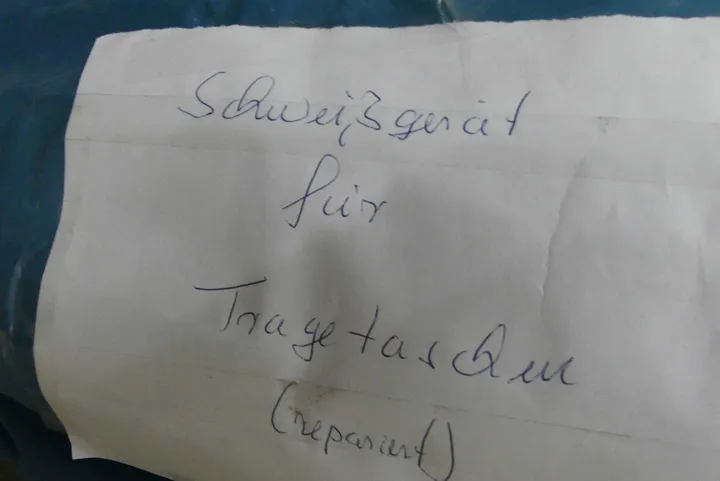 Schweißgerät
für
Tragetaschen
(repariert)